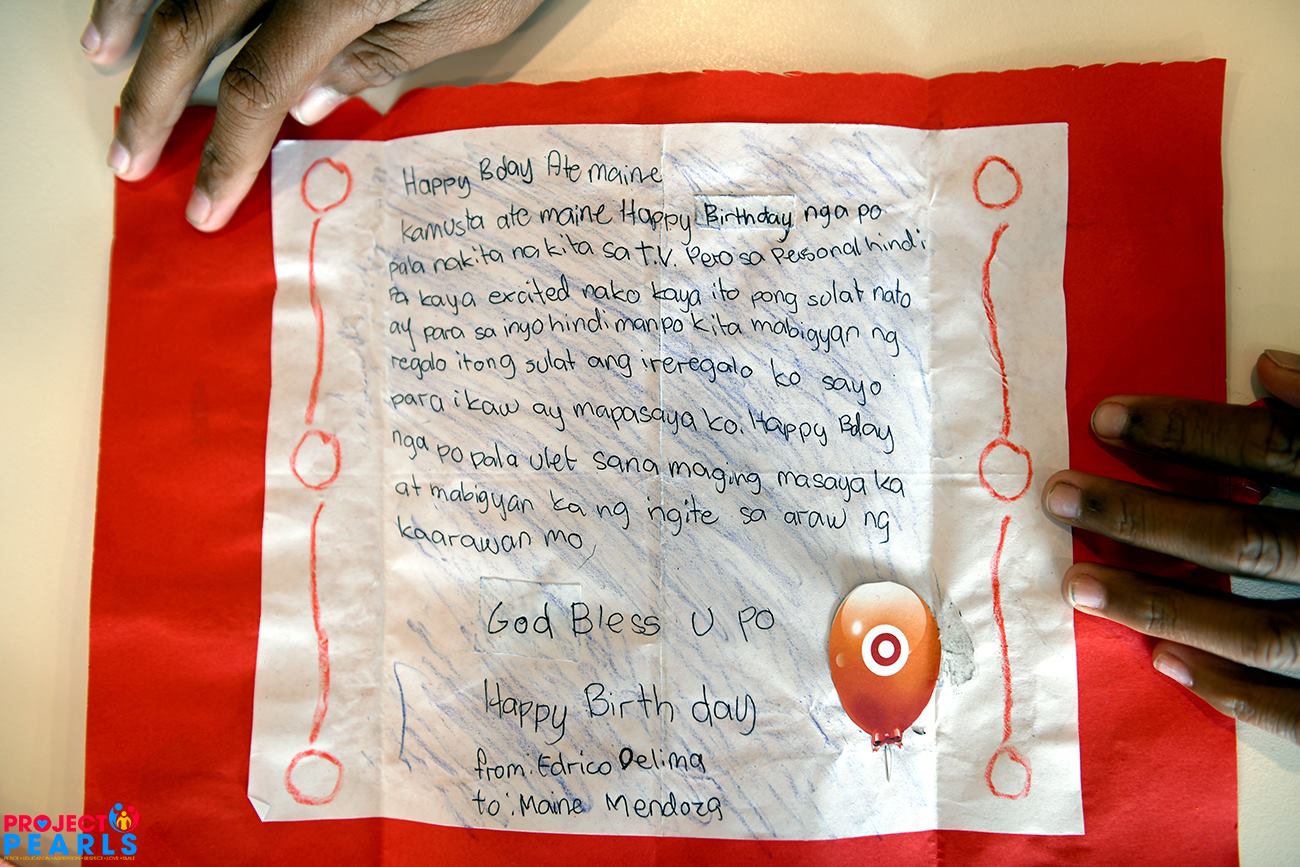 Happy Bday Ate maine
kamusta ate maine Happy Birthday nga po
pala nakita na kita sa T.V. Pero sa Personal hindi
Pa kaya excited nako kaya ito pong sulat nato
ay para sa inyo hindi man po kita mabigyan ng
regalo itong sulat ang ireregalo ko sayo
para ikaw ay mapasaya ko. Happy Bday
nga po pala ulet sana maging masaya ka
at mabigyan ka ng ngite sa araw ng
kaarawan mo,
God Bless U po
Happy Birth day
from: Edrico Delima
to: Maine Mendoza
PROJECT
PEARLS
PEACE • EDUCATION • ASPIRATION • RESPECT • LOVE • SMILE